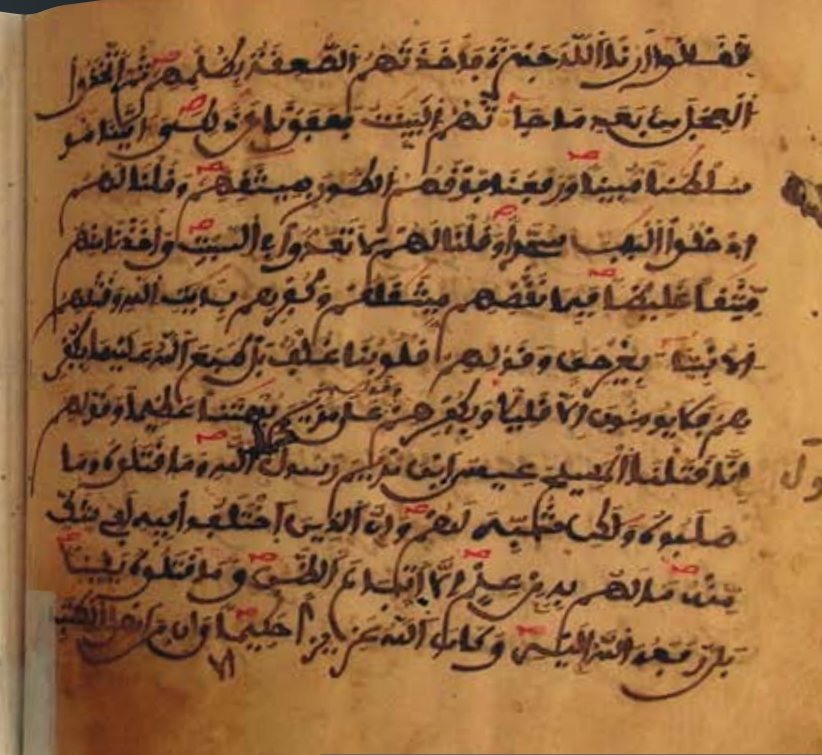 فقالوا أرنا الله جهرة فأخذتهم الصعقة بظلمهم ثم اتخذوا
العجل من بعد ما جاءتهم البينت فعفونا عن ذلك وءاتينا مو
سلطنا مبينا ورفعنا فوقهم الطور بميثقهم وقلنا لهم
ادخلوا الباب سجدا وقلنا لهم لا تعدوا في السبت وأخذنا منهم
ميثقا غليظا فبما نقضهم ميثقهم وكفرهم بايت الله وقتلهم
الانبياء بغير حق وقولهم قلوبنا غلف بل طبع الله عليها بكفر
هم فلا يومنون الا قليلا وبكفرهم وقولهم على مريم بهتنا عظيما وقولهم
انا قتلنا المسيح عيسى ابن مريم رسول الله وما قتلوه وما
صلبوه ولكن شبه لهم وان الذين اختلفوا فيه لفي شك
منه ما لهم به من علم الا اتباع الظن وما قتلوه يقينا
بل رفعه الله اليه وكان الله عزيزا حكيما وان من اهل الكتب